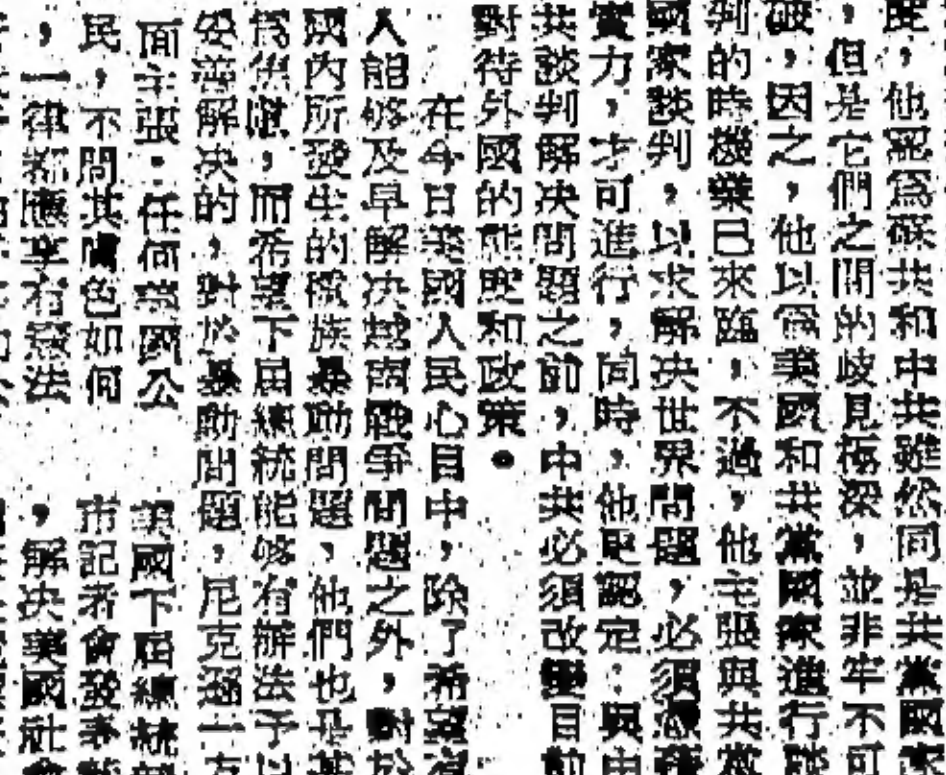 度，他認爲蘇共和中共雖然同是共黨國家
，但是它們之間的歧見極深，並非牢不可
破，因之，他以爲美國和共黨國家進行談
判的時機業已來臨，不過，他主張與共黨
國家談判，以求解決世界問題，必須憑藉
實力，才可進行，同時，他更認定：與中
共談判解決問題之前，中共必須改變目前
對待外國的態度和政策。
在今日美國人民心目中，除了希望有
人能够及早解决越南戰爭問題之外，對於
國內所發生的種族暴動問題，他們也是甚
爲焦慮，而希望下屆總統能够有辦法予以
妥善解决的，對於暴動問題，尼克遜一方
面主張：任何美國公
民，不問其膚色如何
，一律都應享有憲法
美國下屆總統
市記者會發表
，解决美國社會